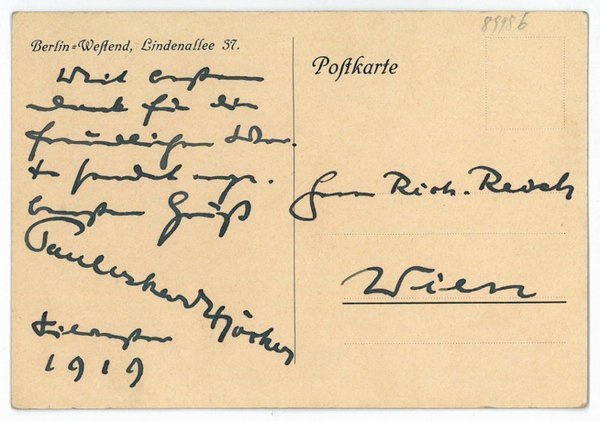 Berlin-Westend, Lindenallee 37.
Mit bestem
Dank für die
freundlichen Wor-
te sendet erge-
bensten Gruß
Paul Oskar Höcker
Silvester
1919
Postkarte
Herrn Rich.
Wien